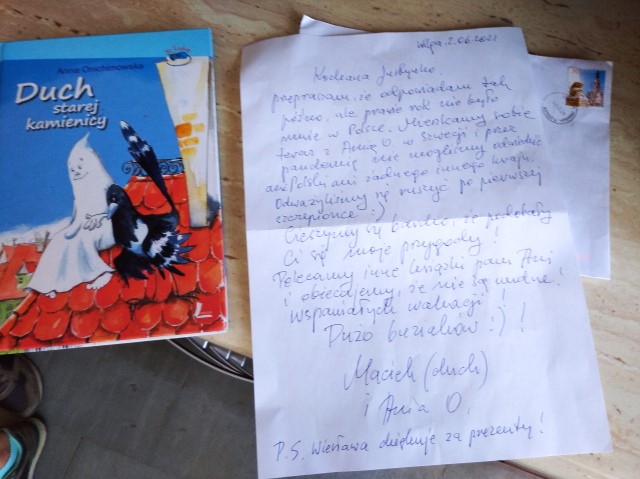 Anna Onichimowska
Duch
starej
kamienicy
2.06.2021
Kochana Justynko,
przepraszam, że odpowiadam tak
późno, ale prawie rok nie było
mnie w Polsce. Mieszkamy sobie
teraz z Anią O. w Szwecji i przez
pandemię nie mogliśmy odwiedzić
ani Polski ani żadnego innego kraju.
Odważyliśmy się ruszyć po pierwszej
szczepionce :)
Cieszymy się bardzo, że podobały
Ci się moje przygody!
Polecamy inne książki pani Ani
i obiecujemy, że nie są nudne!
Wspaniałych wakacji!
Dużo buziaków :) !
Maciek (duch)
i Ania O.
P.S. Wiesława dziękuje za prezenty!